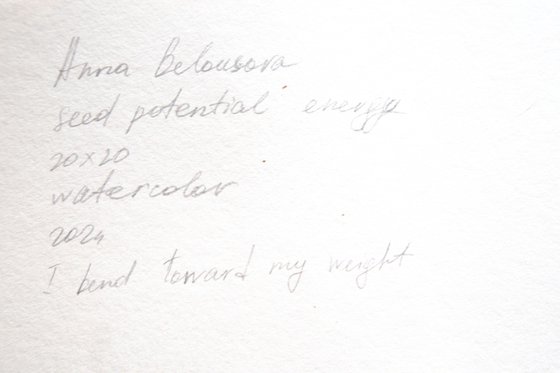 Anna Belousova
seed potential energy
20x20
watercolor
2024
I bend toward my weight